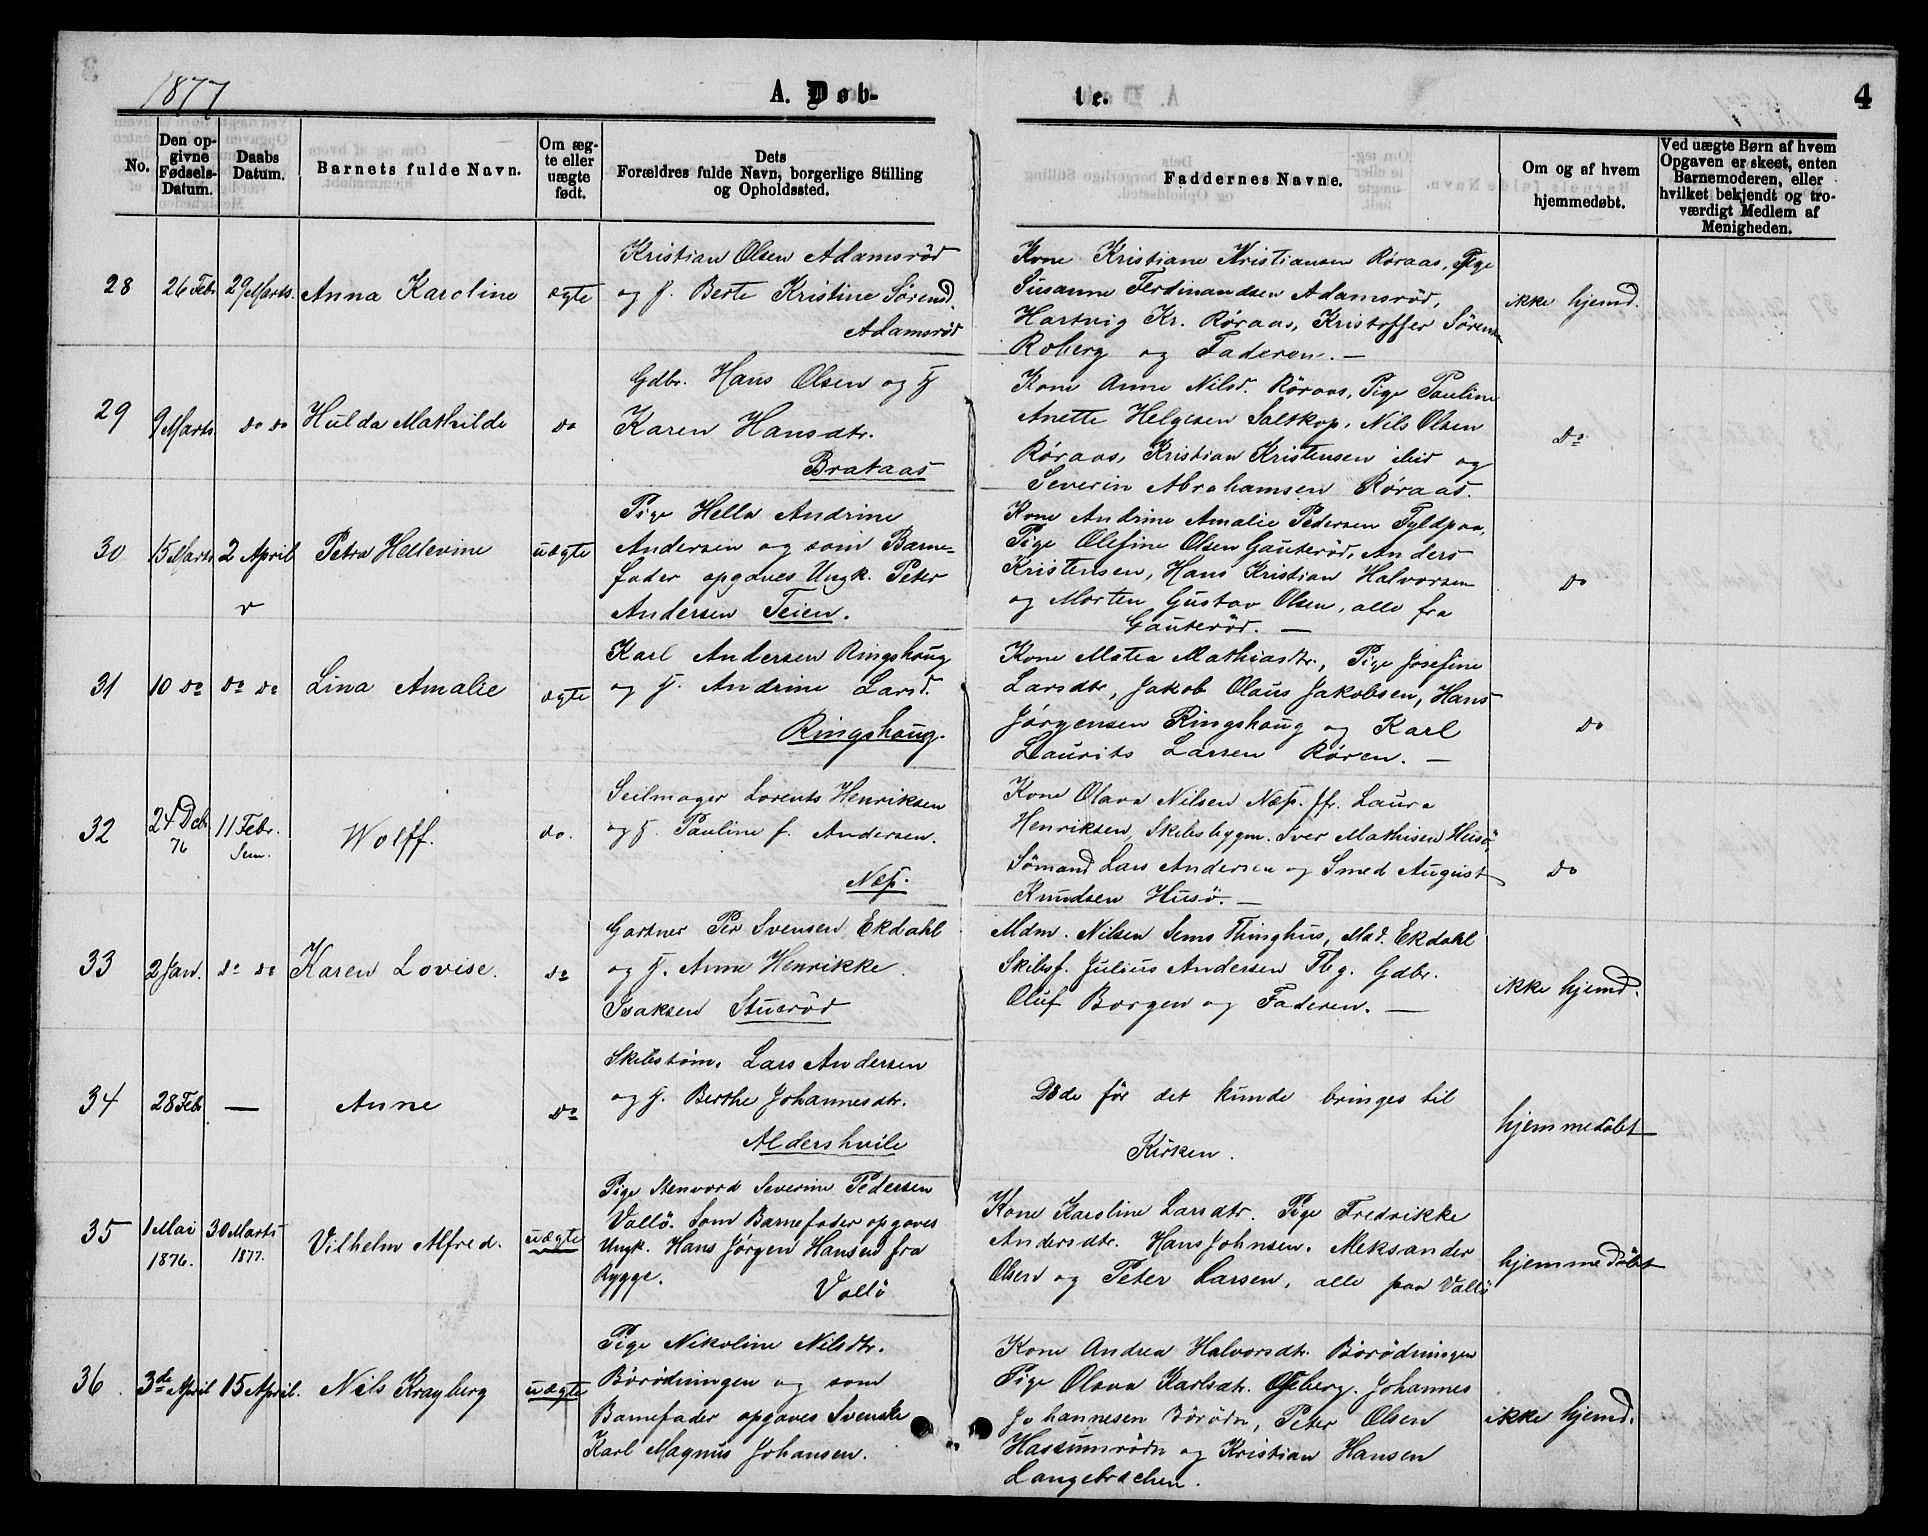 1877
A. Døb-
te.
4
No.
Den op-
givne
Fødsels-
Datum.
Daabs
Datum.
Barnets fulde Navn.
Om æg-
te eller
uægte
født.
Dets
Forældres fulde Navn, borgerlige Stilling
og Opholdssted.
Faddernes Navne.
Om og af hvem
hjemmedøbt.
Ved uægte Børn af hvem
Opgaven er skeet, enten
Barnemoderen, eller
hvilket bekjendt og tro-
værdigt Medlem af
Menigheden.
28
26 Febr
29 Marts.
Anna Karoline
ægte
Kristian Olsen Adamsröd
og H. Berte Kristine Sørensd.
Adamsröd
Kone Kristiane Kristiansen Røraas, Pige
Susanne Ferdinandsen Adamsröd,
Hartvig Kr. Røraas, Kristoffer Sörens
Roberg og Faderen. —
ikke hjemd.
29
9 Marts
do do
Hulda Mathilde
do
Gdbr. Hans Olsen og H
Karen Hansdtr.
Brataas
Kone Anne Nilsd. Röraas, Pige Pauline
Anette Helgesen Saltkop, Nils Olsen
Røraas, Kristian Kristensen ibid og
Severin Abrahamsen Røraas.
do
30
15 Marts
2 April
Petra Hellevine
uægte
Pige Hella Andrine
Andersen og som Barne-
fader opgaves Ungk. Peter
Andersen Teien.
Kone Andrine Amalie Pedersen Fyldpaa,
Pige Olefine Olsen Gauteröd, Anders
Kristensen, Hans Kristian Halvorsen
og Morten Gustav Olsen, alle fra
Gauteröd. —
do
31
10 do
do do
Lina Amalie
ægte
Karl Andersen Ringshaug
og H. Andrine Larsd.
Ringshaug.
Kone Matea Mathiasdtr., Pige Josefine
Larsdtr, Jakob Olaus Jakobsen, Hans
Jørgensen Ringshaug og Karl
Laurits Larsen Røren. —
do
32
24 Deb
76
11 Febr.
Sem.
Wolff.
do.
Seilmager Lorents Henriksen
og H. Pauline f. Andersen.
Næs.
Kone Olava Nilsen Næs. Jfr. Laura
Henriksen, Skibsbygm. Iver Mathisen Husö,
Sömand Lars Andersen og Smed August
Knudsen Husö. —
do
33
2 Jan.
do do
Karen Lovise.
do
Gartner Per Svensen Ekdahl
og H. Anne Henrikke
Isaksen Stueröd
Mdm. Nilsen Sems Thinghus, Mad. Ekdahl
Skibsf. Julius Andersen Tbg. Gdbr.
Oluf Borgen og Faderen. —
ikke hjemd.
34
28 Feb
—
Anne
do
Skibstöm. Lars Andersen
og H. Berthe Johannesdtr.
Aldershvile
Döde för det kunde bringes til
Kirken.
hjemmedöbt
35
1 Mai
1876.
30 Marts
1877.
Vilhelm Alfred.
uægte
Pige Stenvord Severine Pedersen
Vallö. Som Barnefader opgaves
Ungk. Hans Jørgen Hansen fra
Rygge.
Vallö
Kone Karoline Larsdtr. Pige Fredrikke
Andersdtr. Hans Johnsen. Aleksander
Olsen og Peter Larsen, alle paa Vallö
hjemmedöbt
36
3de April
15 April.
Nils Krayberg
uægte
Pige Nikoline Nilsdtr.
Börödningen og som
Barnefader opgaves Svenske
Karl Magnus Johansen.
Kone Andrea Halvorsdtr. Börödningen
Pige Olava Karlsdtr. Geberg. Johannes
Johannesen Börödn, Peter Olsen
Hassumrödn og Kristian Hansen
Langebrechen.
ikke hjemd.